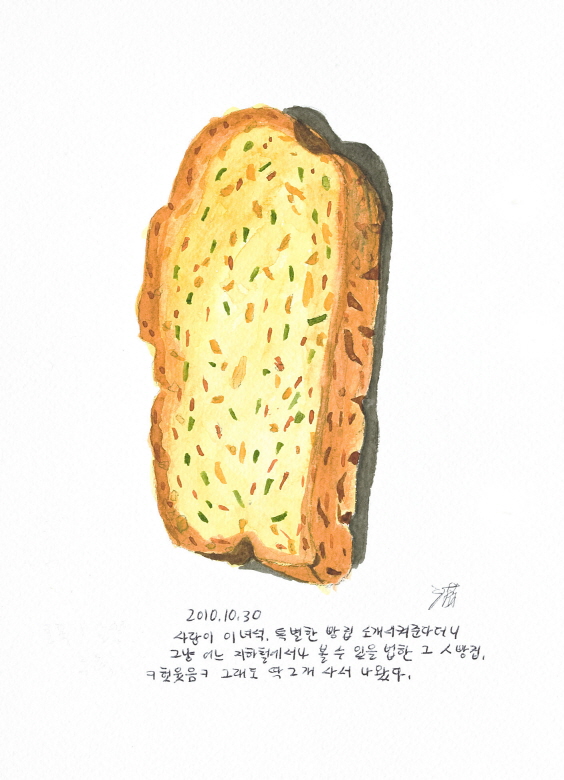 2010.10.30
이녀석. 특별한 빵집 소개시켜준다더니
그냥 어느 지하철에서나 볼 수 있을 법한 그 ㅅ빵집.
ㅋ헛웃음ㅋ 그래도 딱 2개 사서 나왔다.